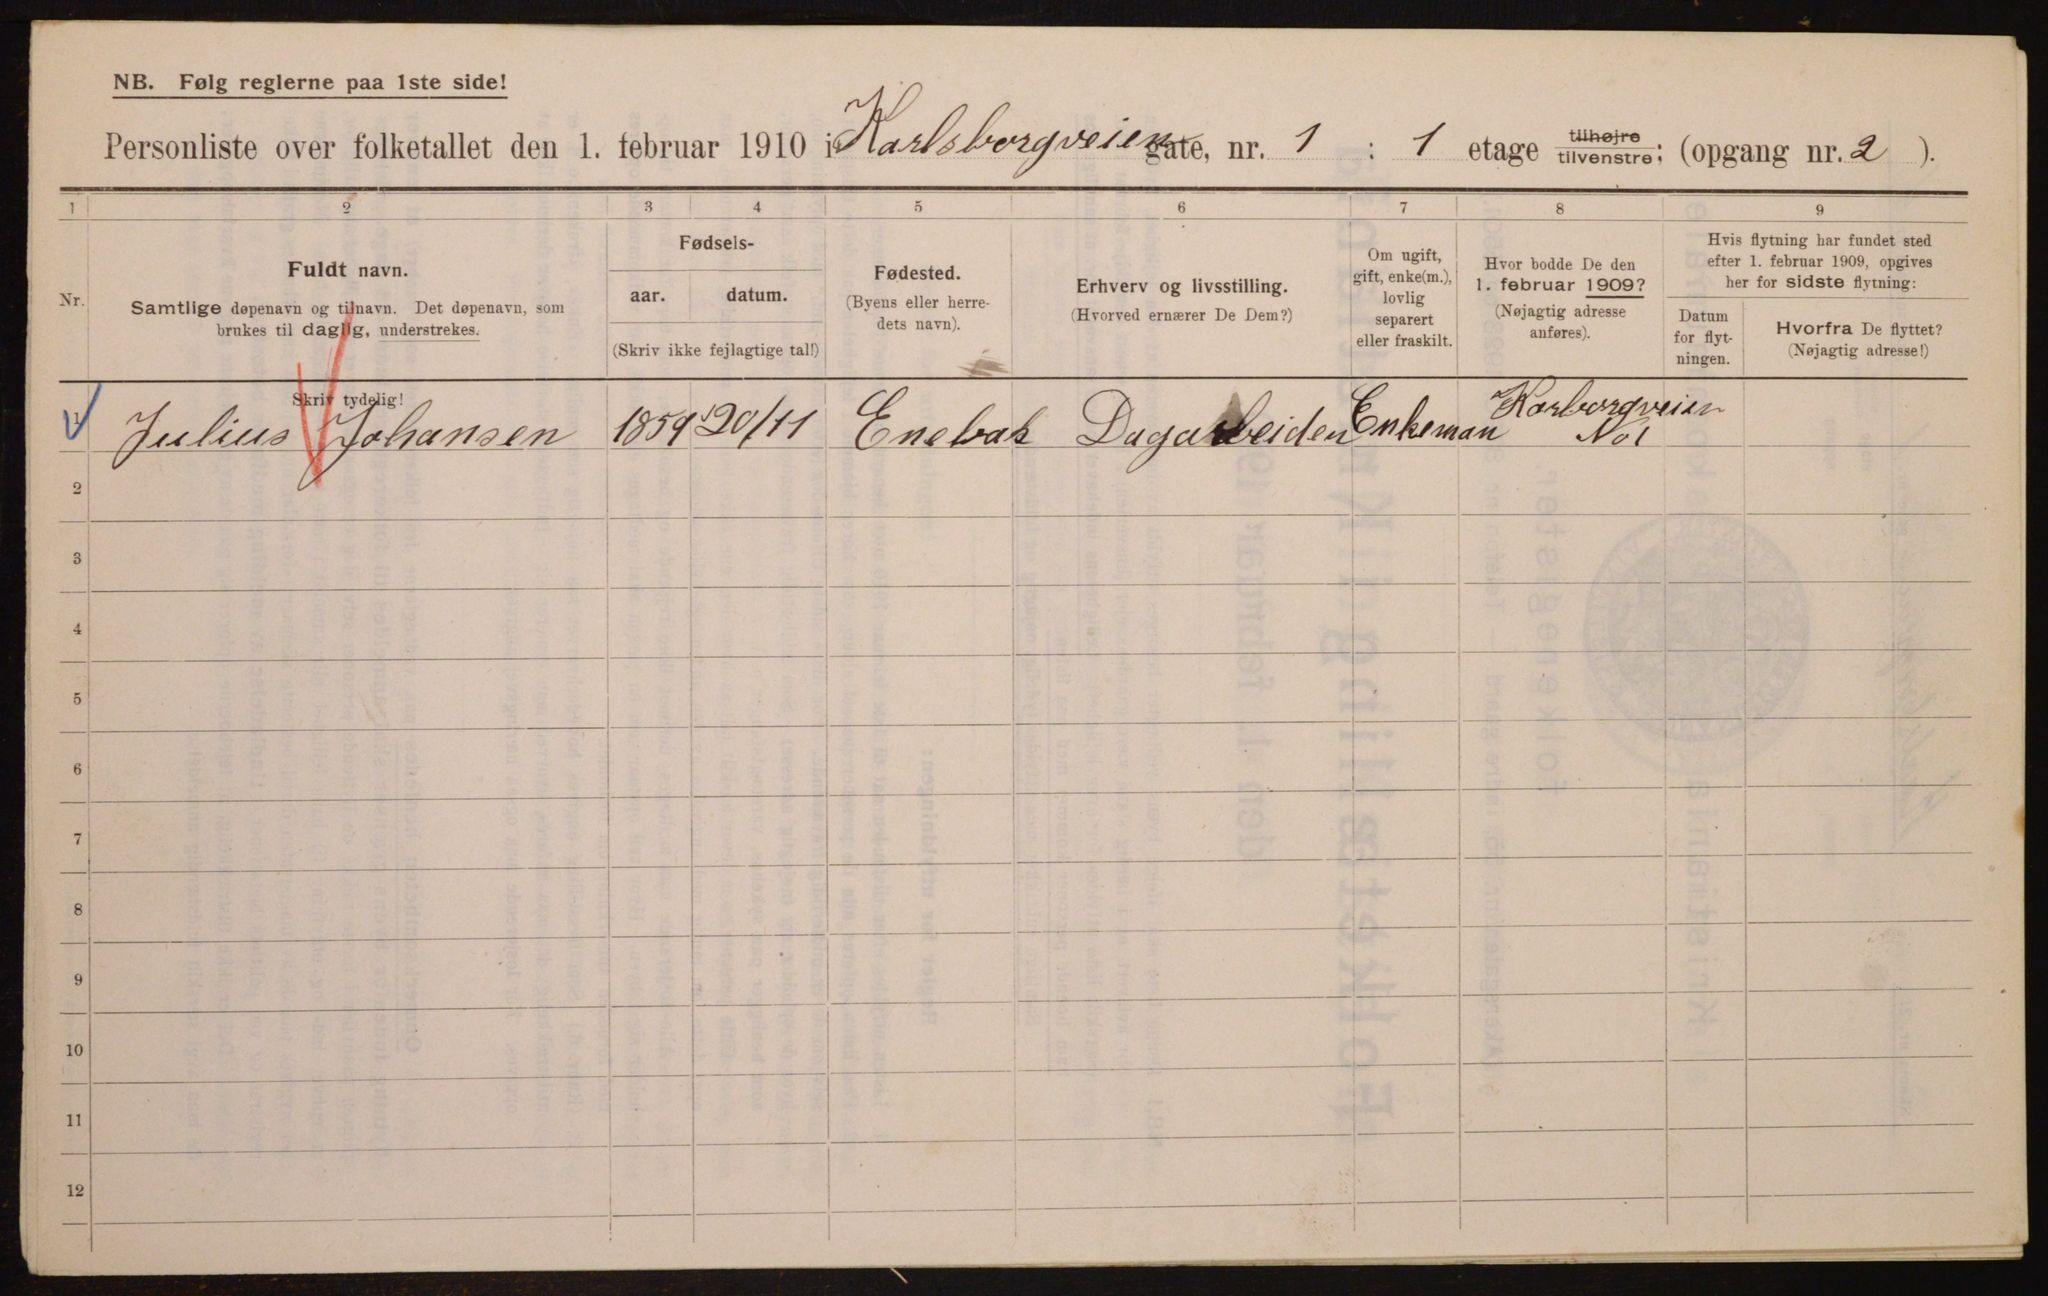 NB. Følg reglerne paa 1ste side!
Personliste over folketallet den 1. februar 1910 i Karlsborgveien gate, nr. 1 : 1 etage tilhøjre tilvenstre; (opgang nr. 2 ).
1 2 3 4 5 6 7 8 9
Nr.
Fuldt navn.
Samtlige døpenavn og tilnavn. Det døpenavn, som
brukes til daglig, understrekes.
Skriv tydelig!
Fødsels-
aar. datum.
(Skriv ikke fejlagtige tal!)
Fødested.
(Byens eller herre-
dets navn).
Erhverv og livsstilling.
(Hvorved ernærer De Dem?)
Om ugift,
gift, enke(m.),
lovlig
separert
eller fraskilt.
Hvor bodde De den
1. februar 1909?
(Nøjagtig adresse
anføres).
Hvis flytning har fundet sted
efter 1. februar 1909, opgives
her for sidste flytning:
Datum
for flyt-
ningen.
Hvorfra De flyttet?
(Nøjagtig adresse!)
1 Julius Johansen 1859 20/11 Enebak Dagarbeider Enkeman Karborgveien
No 1
2
3
4
5
6
7
8
9
10
11
12